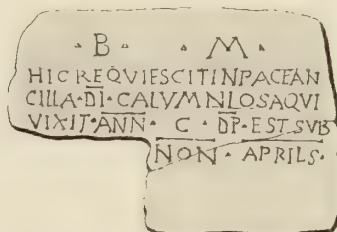 · B · · M ·
HICREQVIESCITINPACEAN
CILLA·DI·CALVMNLOSAQVI
VIXIT·ANN· C · DP·EST·SVB
NON · APRILS·